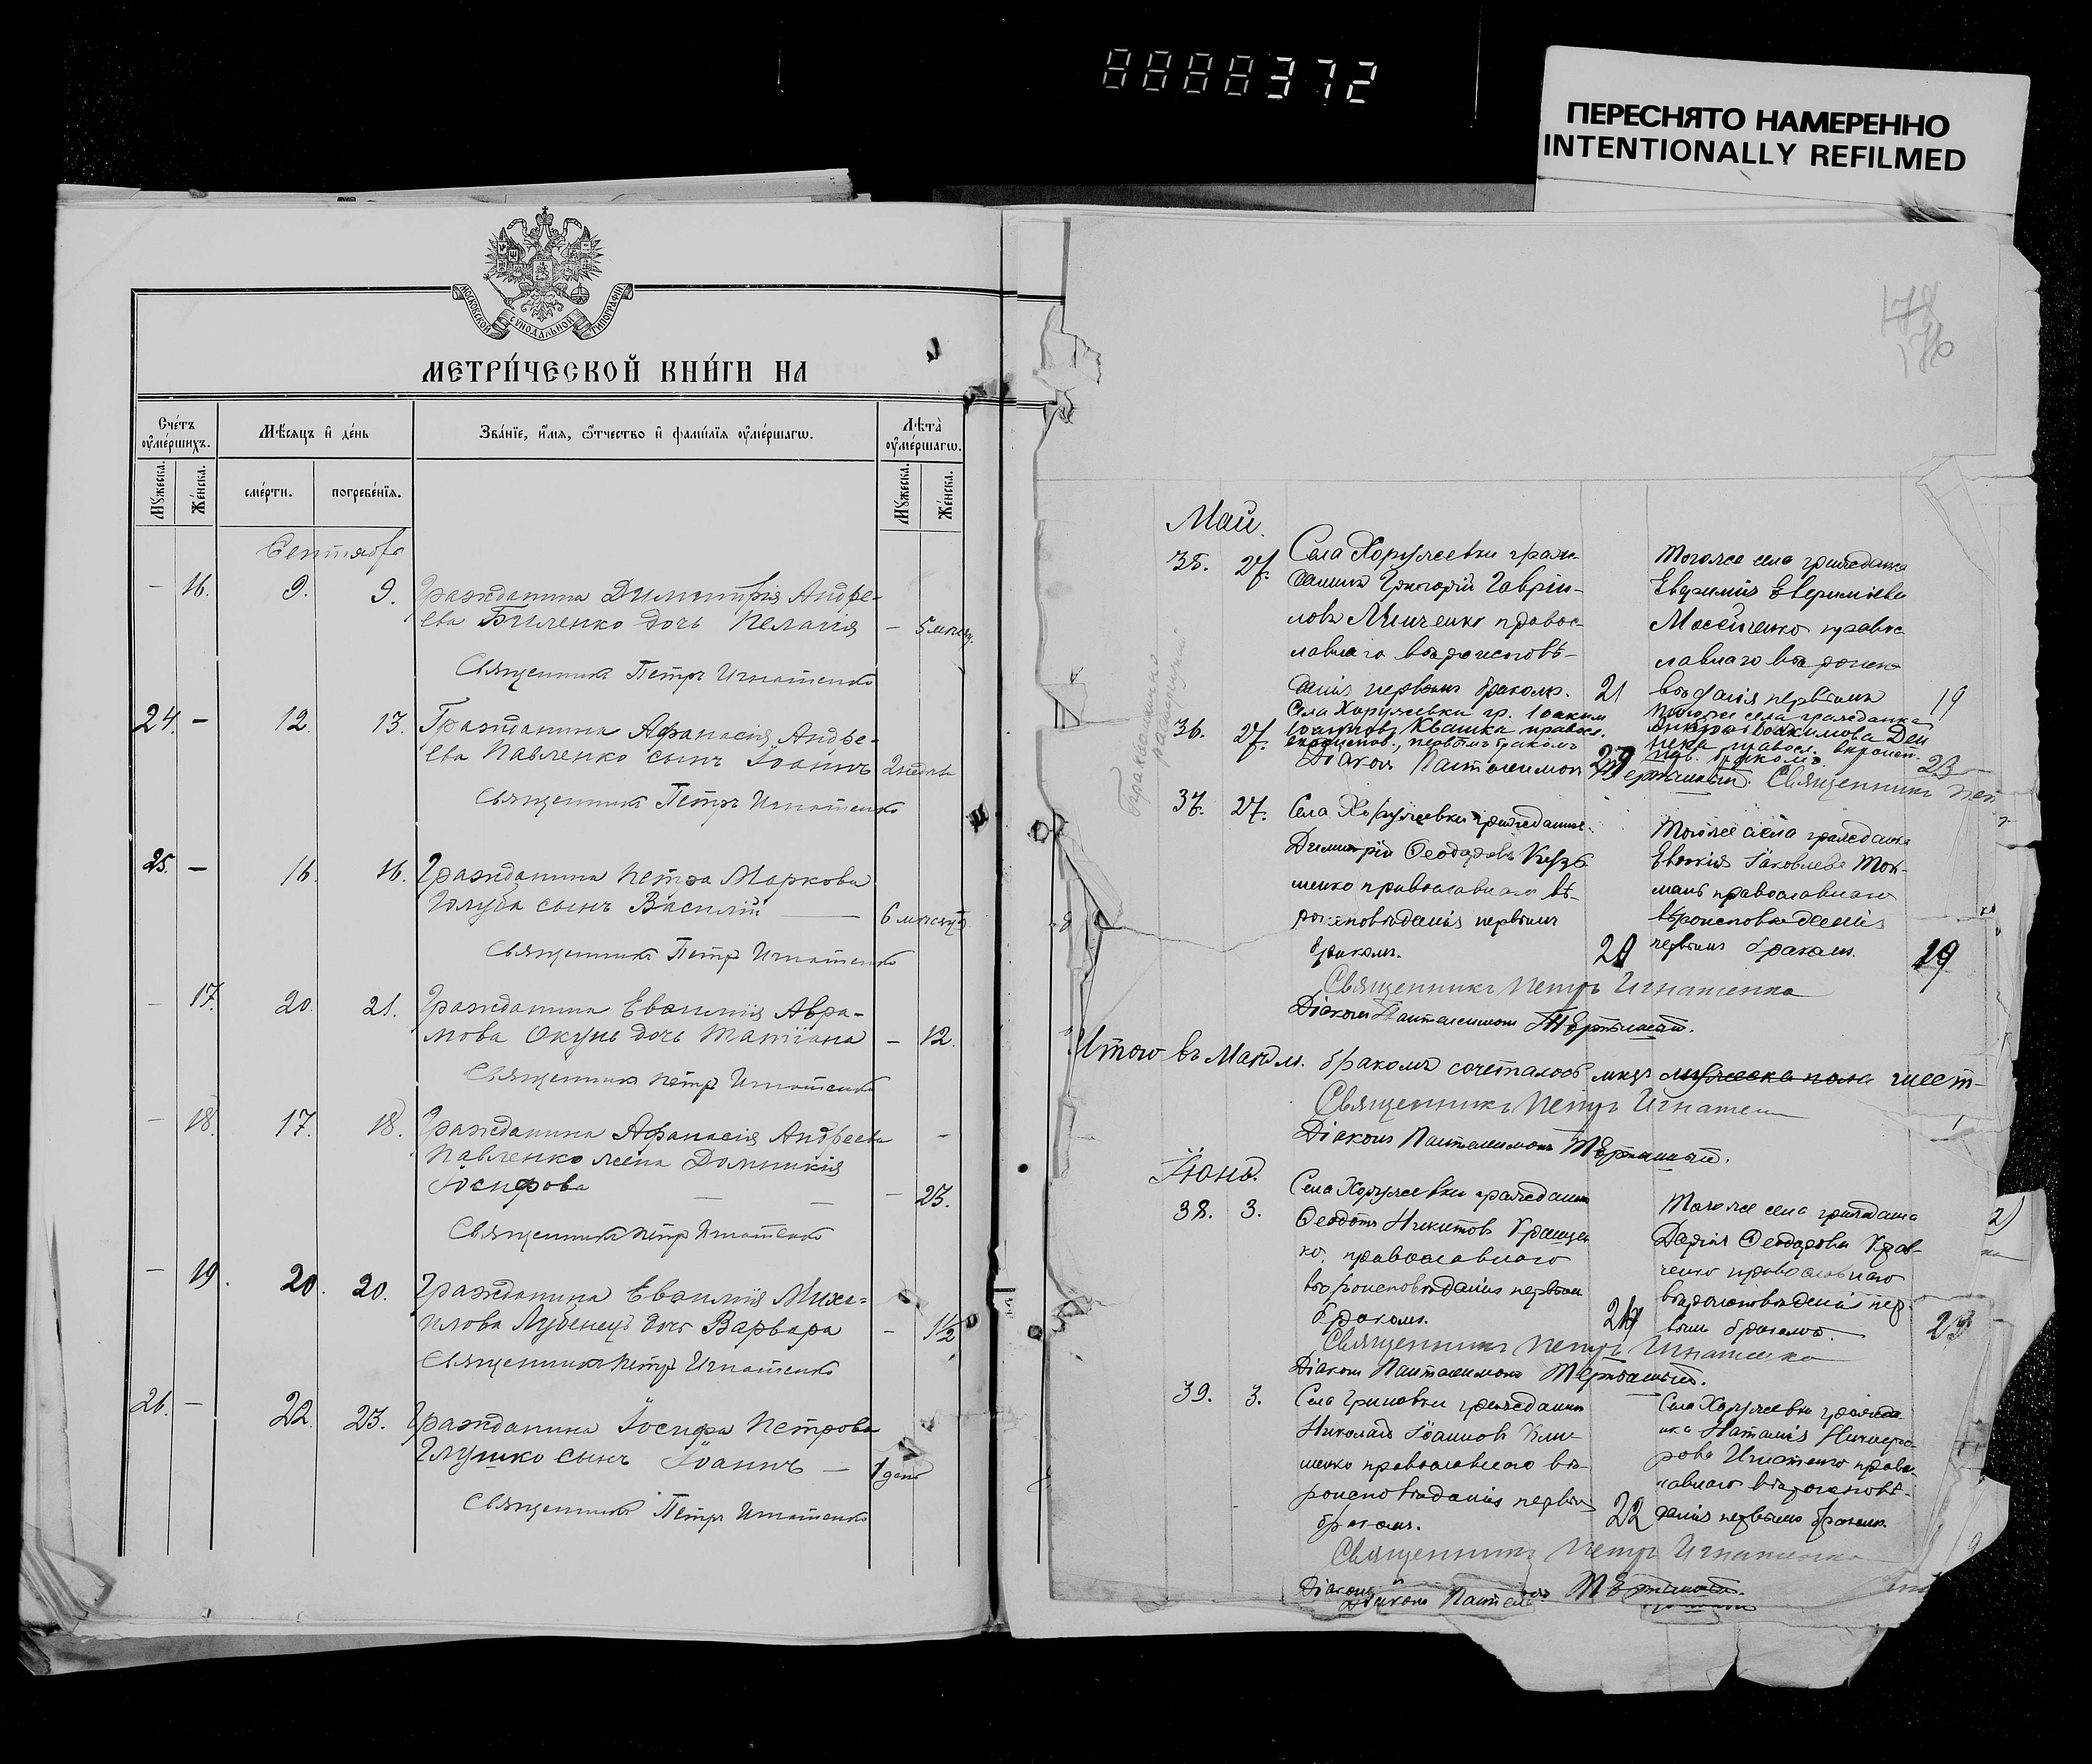 0000372
ПЕРЕСНЯТО НАМЕРЕННО
INTENTIONALLY REFILMED
МОСКОВСКОЙ СУНОДАЛЬНОЙ ТИПОГРАФІИ
МЕТРИ́ЧЕСКОЙ КНИ́ГИ НА
Сче́тъ ᲂу҆ме́ршихъ.
Мѣ́сяцъ и҆ де́нь
Зва́нїе, и҆́мя, ѻ҆́тчество и҆ фами́лїя ᲂу҆ме́ршагѡ.
Лѣ́та ᲂу҆ме́ршагѡ.
Мꙋ́жеска.
Же́нска.
сме́рти.
погребе́нїя.
Мꙋ́жеска.
Же́нска.
Сентябрь
— 16. 9. 9. Гражданина Димитрія Андре-
ева Биленко дочь Пелагія — 5 месяц.
Священникъ Петръ Игнатенко
24. — 12. 13. Гражданина Афанасія Андре-
ева Павленко сынъ Іоаннъ 2 недели
Священникъ Петръ Игнатенко
25. — 16. 16. Гражданина Петра Маркова
Голуба сынъ Василій — 6 месяцев
Священникъ Петръ Игнатенко
— 17. 20. 21. Гражданина Евфимія Авра-
мова Окунь дочь Татіана — 12.
Священникъ Петръ Игнатенко
— 18. 17. 18. Гражданина Афанасія Андреева
Павленко жена Домникія
Іосифова — — — 23.
Священникъ Петръ Игнатенко
— 19. 20. 20. Гражданина Евфимія Миха-
илова Лубенец дочь Варвара — 1½
Священникъ Петръ Игнатенко
26. — 22. 23. Гражданина Іосифа Петрова
Глушко сынъ Іоаннъ — 1 день
Священникъ Петръ Игнатенко
178
176
Май.
35. 27. Села Хоружевки граж-
данинъ Григорій Гаврiи-
ловъ Минченко правос-
лавнаго вѣроисповѣ-
данія первымъ бракомъ. 21
Тогоже села гражданка
Евфимія Евфиміева
Мосейченко правос-
лавнаго вѣроиспо-
вѣданія первымъ 19
36. 27. Села Хоружевки гр. Іоаким
Іоанновъ Квашка правосл.
вѣроиспов., первымъ бракомъ
Тогоже села гражданка
Іоакимова
23
Діаконъ Пантелеимонъ Священникъ Пет
37. 27. Села Хоружевки гражданинъ
Димитрій Феодоровъ Кузь-
менко православнаго вѣ-
роисповѣданія первымъ
бракомъ. 20
Тогоже села гражданка
Евгенія Іаковлева Ток-
мань православнаго
вѣроисповѣданія
первымъ бракомъ. 19
Священникъ Петръ Игнатенко
Діаконъ Пантелеимонъ
Итого въ Маѣ м. бракомъ сочеталось лицъ мужеска пола шест-
Священникъ Петръ Игнатен
Діаконъ Пантелеимонъ
Іюнь.
38. 3. Села Хоружевки гражданинъ
Феодотъ Никитовъ Кращен-
ко, православнаго
вѣроисповѣданія первым
бракомъ. 24
Тогоже села гражданка
Дарія Феодорова Крав-
ченко православнаго
вѣроисповѣданія пер-
вымъ бракомъ. 23
Священникъ Петръ Игнатенко
Діаконъ Пантелеимонъ
39. 3. Села Гриновки гражданинъ
Николай Іоанновъ Кли-
менко православнаго вѣ-
роисповѣданія первым
бракомъ. 22
Села Хоружевки гражда-
нка Наталія Никифо-
рова Игнатенко правос-
лавнаго вѣроисповѣ-
данія первымъ бракомъ
Священникъ Петръ Игнатенко
Діаконъ
Діаконъ Пантелеимонъ